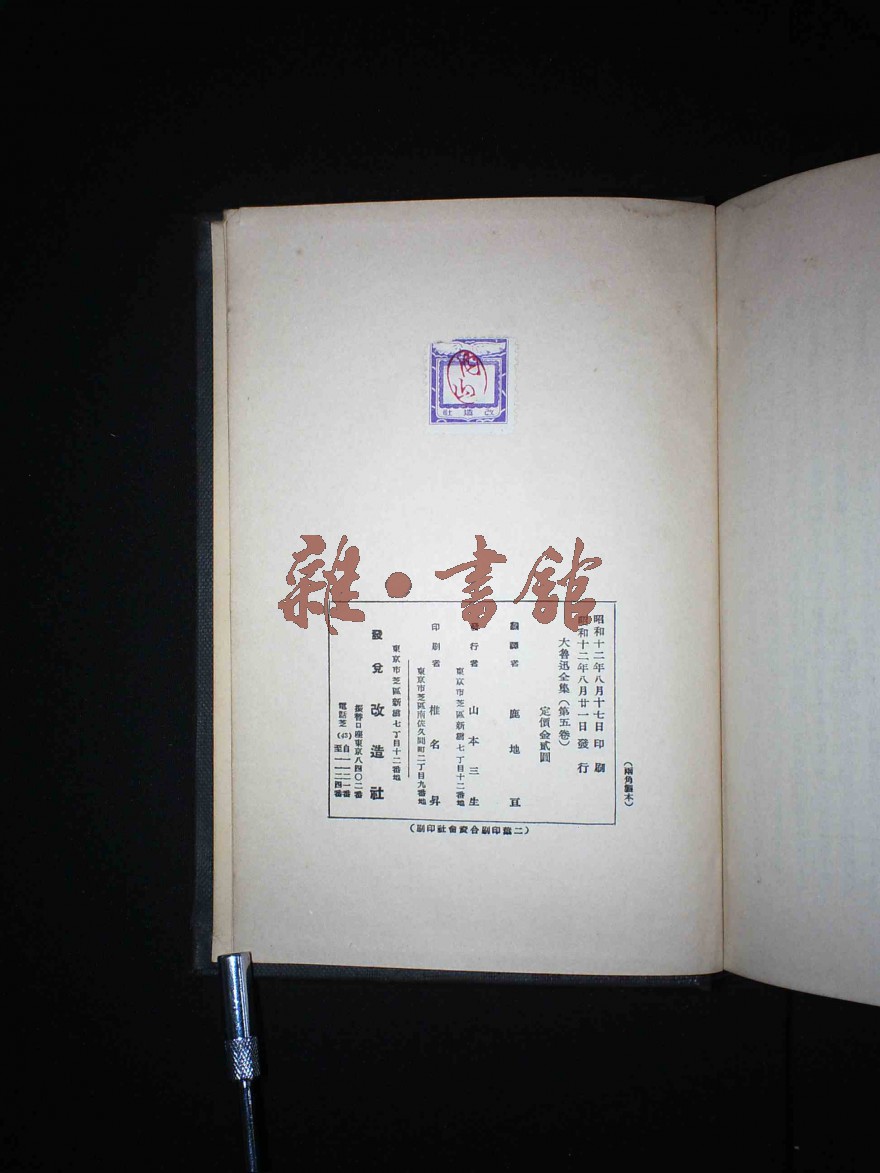 内山
改造社
雜·書館
昭和十二年八月十七日印刷
昭和十二年八月廿一日發行
大魯迅全集(第五卷)
定價金貳圓
翻譯者 鹿地亘
發行者 山本三生
東京市芝區新橋七丁目十二番地
印刷者 椎名昇
東京市芝區南佐久間町二丁目九番地
東京市芝區新橋七丁目十二番地
發兌 改造社
振替口座東京八四〇二番
電話芝(43)自一一二一番
至一一二四番
(兩角製本)
(二葉印刷合資會社印刷)